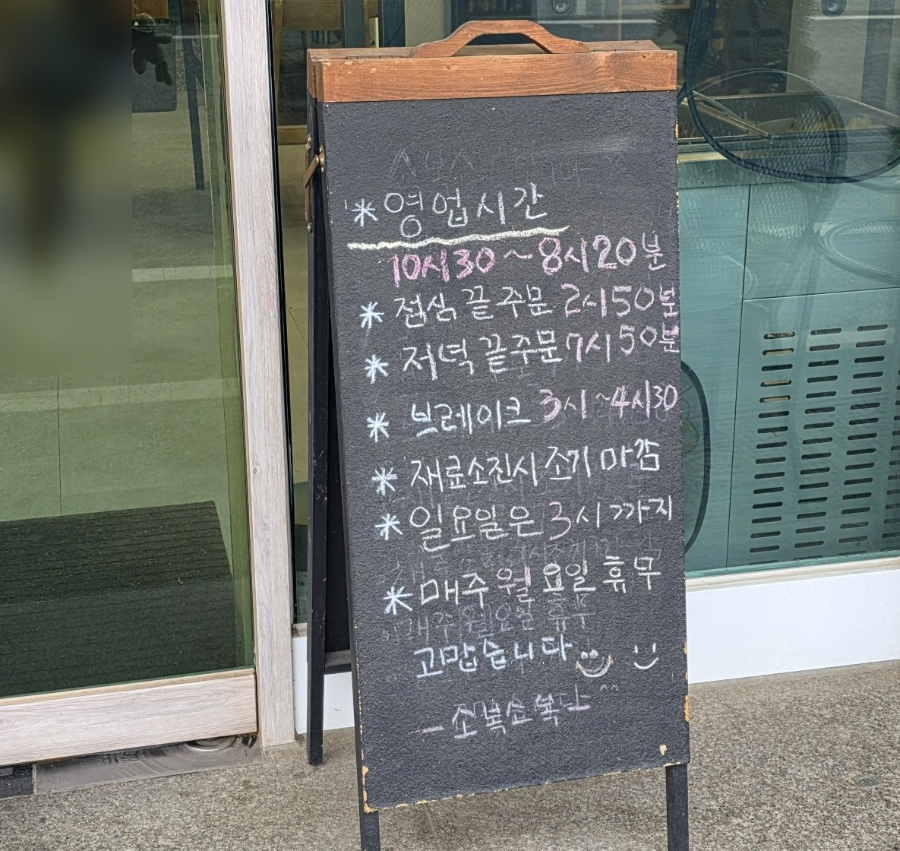 * 영업시간
10시30~8시20분
* 점심 끝주문 2시50분
* 저녁 끝주문 7시50분
* 브레이크 3시~4시30
* 재료소진시 조기 마감
* 일요일은 3시까지
* 매주 월요일 휴무
고맙습니다
- 소복소복난 ^^